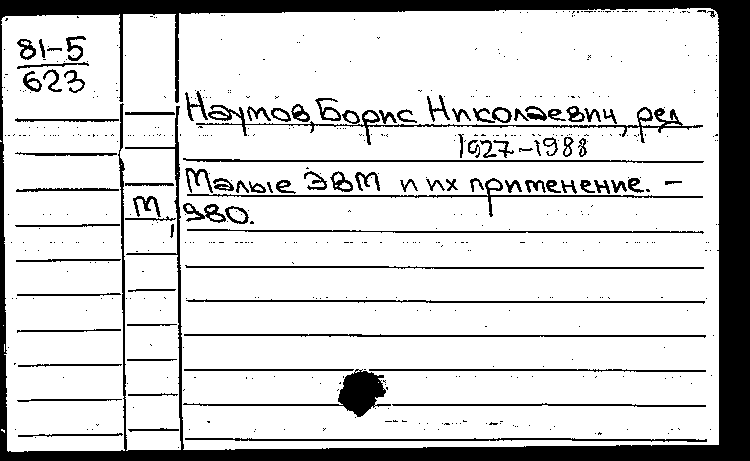 81-5
623
Наумов, Борис Николаевич, ред
1927-1988
Малые ЭВМ и их применение. -
М, 980.